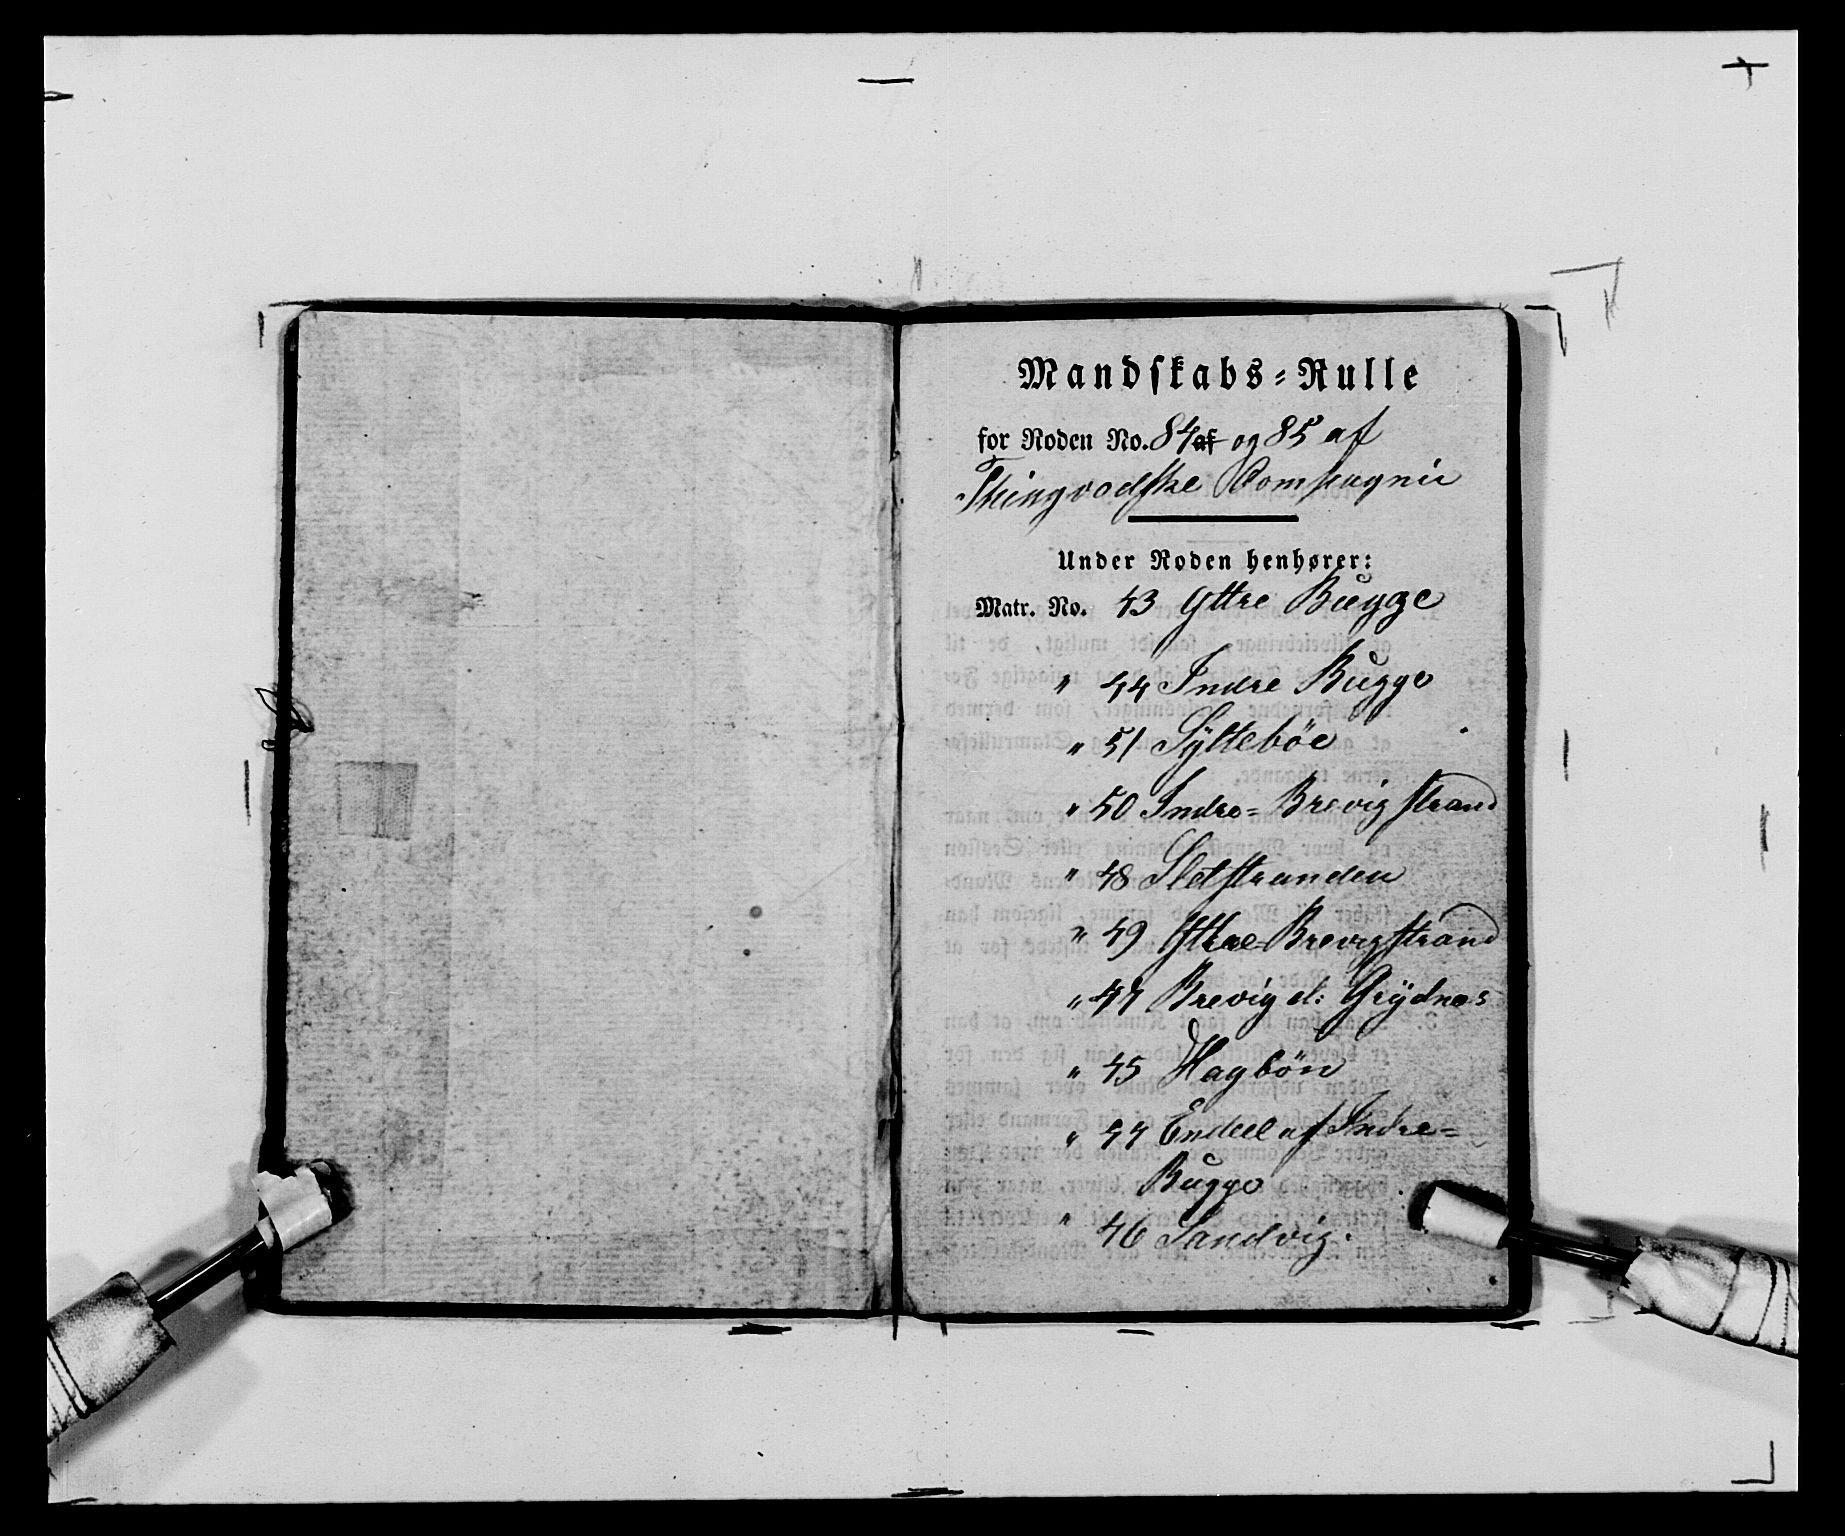 Mandskabs=Rulle
for Roden No. 84 af og 85 af
Thingvodske Compagnie
Under Roden henhører:
Matr. No. 43 Yttre Bugge
" 44 Indre Bugge
" 51 Syltebøe
" 50 Indre=Brevigstrand
" 48 Sletstranden
" 49 Yttre=Brevigstrand
" 47 Brevig el: Grydnes
" 45 Hagbön
" 44 Endeel af Indre=
Bugge
" 46 Sandvig.